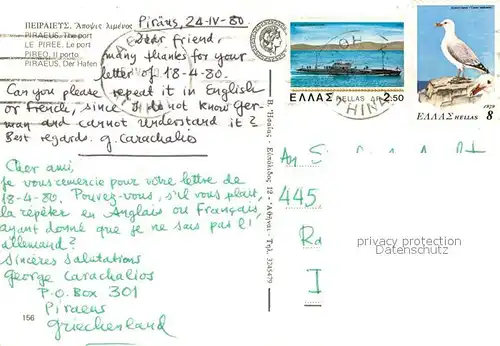 ΠΕΙΡΑΙΕΥΣ. Ἄποψις λιμένος
PIRAEUS. The port
LE PIREE. Le port
PIREO. Il porto
PIRAEUS. Der Hafen
Piräus, 24-IV-80.
Dear friend,
many thanks for your
letter of 18-4-80.
Can you please repeat it in English
or French, since I do not know Ger-
man and cannot understand it?
Best regards. G. Carachalios
Cher ami,
Je vous remercie pour votre lettre de
18-4-80. Pouvez-vous, s'il vous plaît,
la répéter en Anglais ou Français,
ayant donné que je ne sais pas l'
allemand?
Sincères salutations
George Carachalios
P.O. Box 301
Piraeus
Griechenland
156
Β. Ἠλσίας - Εὐπόλιδος 12 - Ἀθῆναι - Τηλ. 3245479
ΕΛΛΑΣ HELLAS ΔΡ 2.50
1979
ΕΛΛΑΣ HELLAS 8
An
445
Rd
I
privacy protection
Datenschutz